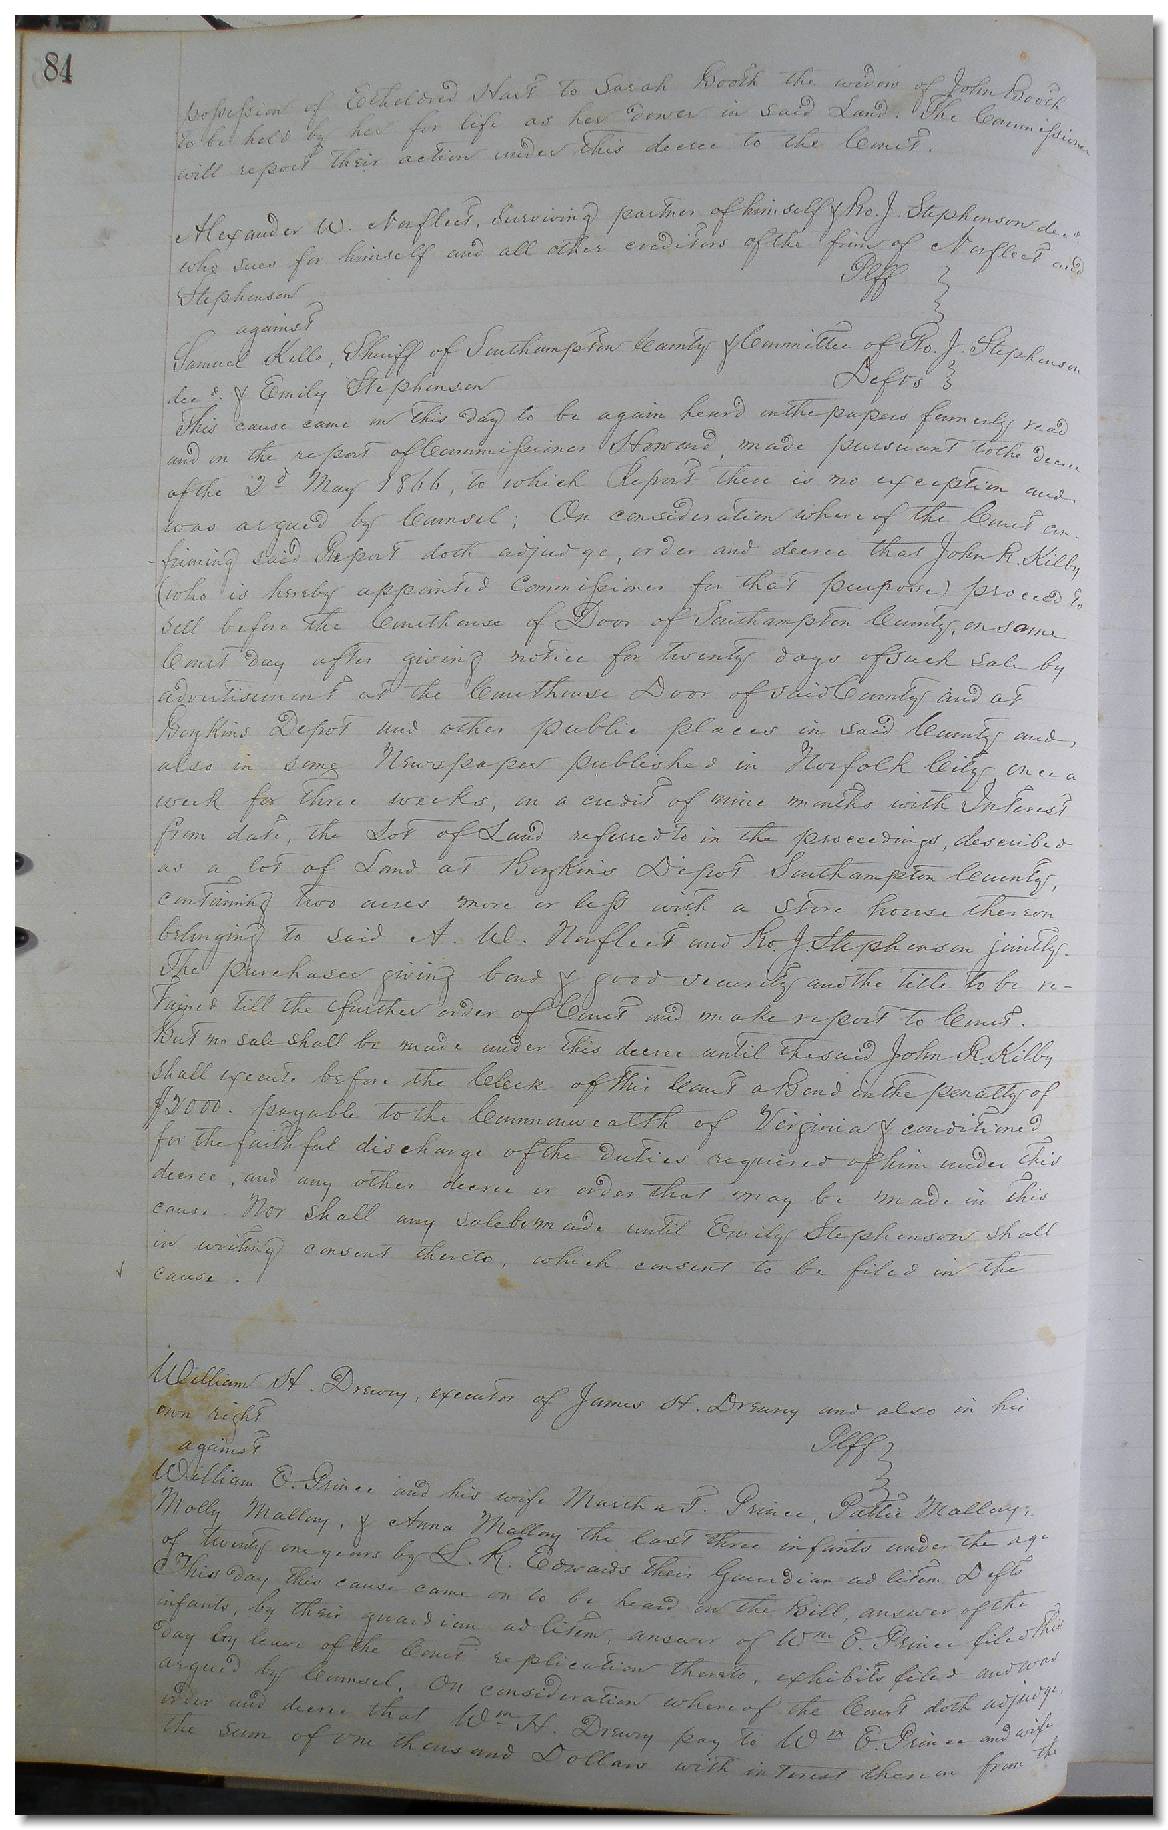 84
possession of Etheldred Hart to Sarah Booth the widow of John Booth
to be held by her for life as her dower in said Land. The Commissioner
will report their action under this decree to the Court.
Alexander W. Norfleet, surviving partner of himself & Ro. J. Stephenson dec d
who sues for himself and all other creditors of the firm of Norfleet and
Stephenson Plff
against
Samuel Kello, Sheriff of Southampton County & Committee of Ro. J. Stephenson
dec d. & Emily Stephenson Defts
This cause came on this day to be again heard on the papers formerly read
and on the report of Commissioner Howard, made pursuant to the decree
of the 2d May 1866, to which Report there is no exception and
was argued by Counsel; On consideration whereof the Court con-
-firming said Report doth adjudge, order and decree that John R. Kilby
(who is hereby appointed Commissioner for that purpose) proceed to
sell before the Courthouse of Door of Southampton County, on some
Court day after giving notice for twenty days of such sale by
advertisement at the Courthouse Door of said County and at
Boykins Depot and other public places in said County and
also in some Newspaper published in Norfolk City, once a
week for three weeks, on a credit of nine months with Interest
from date, the Lot of Land referred to in the proceedings, described
as a lot of Land at Boykins Depot Southampton County,
containing two acres more or less with a store house thereon
belonging to said A. W. Norfleet and Ro. J. Stephenson jointly.
The purchaser giving bond & good security and the title to be re-
tained till the further order of Court and make report to Court.
But no sale shall be made under this decree until the said John R. Kilby
shall execute before the Clerk of this Court a Bond in the penalty of
$2000. payable to the Commonwealth of Virginia & conditioned
for the faithful discharge of the duties required of him under this
decree, and any other decree or order that may be made in this
cause. Nor shall any sale be made until Emily Stephenson shall
in writing consent thereto, which consent to be filed in the
cause.
William H. Drewry, executor of James H. Drewry and also in his
own right Plff
against
William E. Prince and his wife Martha T. Prince, Pattie Mallory,
Molly Mallory, & Anna Mallory the last three infants under the age
of twenty one years by L. R. Edwards their Guardian ad litem Defts
This day this cause came on to be heard on the Bill, answer of the
infants, by their guardian ad litem, answer of Wm E. Prince filed this
day by leave of the Court replication thereto, exhibits filed and was
argued by Counsel. On consideration whereof the Court doth adjudge,
order and decree that Wm H. Drewry pay to Wm E. Prince and wife
the sum of one thousand Dollars with interest thereon from the